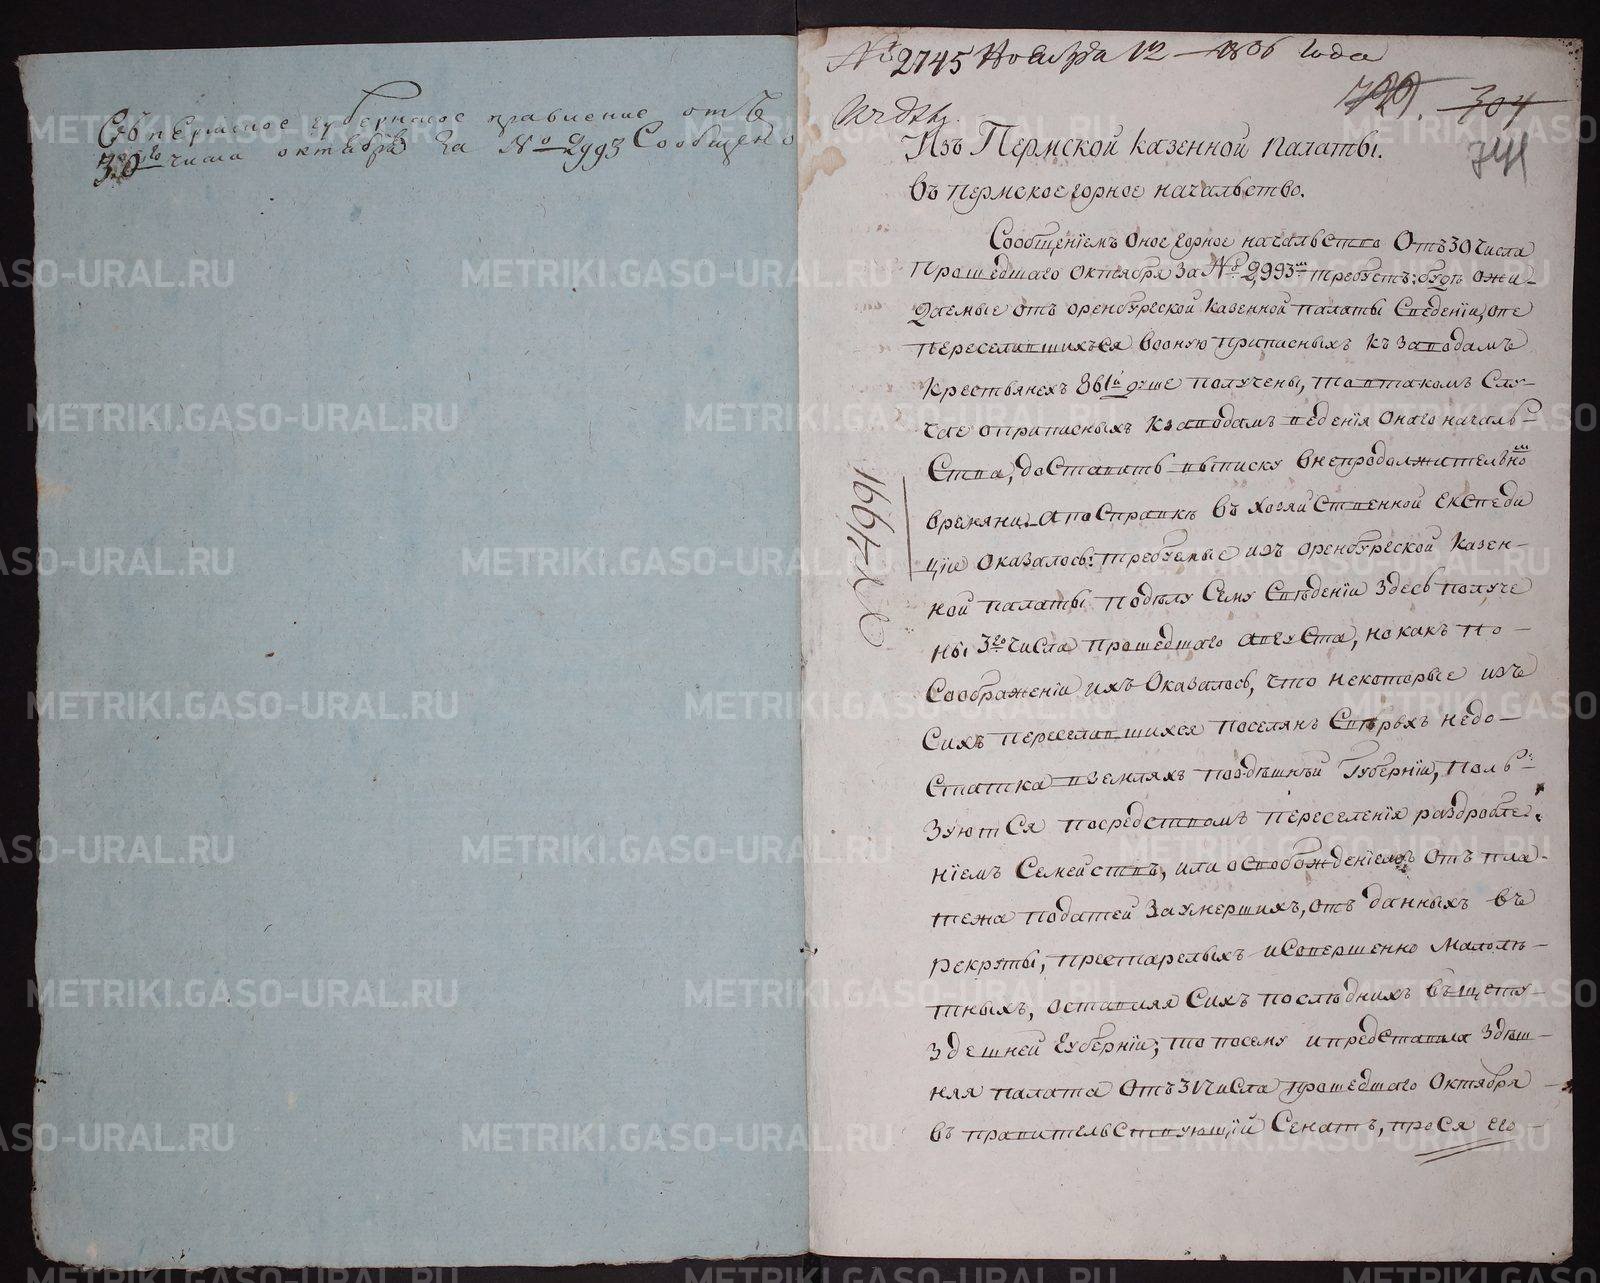 Въ пермское губернское правление отъ
30го числа октября за № 2993 Сообщено
№ 2745 Ноября 12 1806 года
304
711
Изъ Пермской казенной палаты.
въ пермское горное начальство.
Сообщенiемъ оное горное начальство Отъ 30 числа
прошедшаго октября за № 2993м требуетъ: буде ожи-
даемые отъ оренбургской казенной палаты Сведенiи, опе
переселившихъся вооную приписныхъ къ заводамъ
крестьянехъ 861й душе получены, то втакомъ Слу-
чае оприписныхъ кзаводамъ ведения онаго началь-
Ства, доставить выписку внепродолжительном
времяни. А поСправке въ хозяйственной експеди
цiи оказалось: требуемые изъ оренбургской казен-
ной палаты поделу Сему Сведении здесь получе
ны 3го числа прошедшаго августа, но какъ по-
Соображенiи ихъ Оказалось, что некоторые изъ
Сихъ переселившихся поселянъ Сверхъ недо-
статка вземляхъ поздешней Губернiи, поль-
зуются посредствомъ переселенiя раздробле-
нiемъ Семействъ, или освобожденiемъ отъ пла-
тежа податей заумершихъ, отъ данныхъ въ
рекруты, престарелыхъ исовершенно малоле-
тныхъ, оставляя Сихъ последнихъ въ щету
здешней губернiи; то посему ипредставила здеш-
няя палата Отъ 31 числа прошедшаго Октября
въ правительствующiй Сенатъ, прося его
1667
METRIKI.GASO-URAL.RU